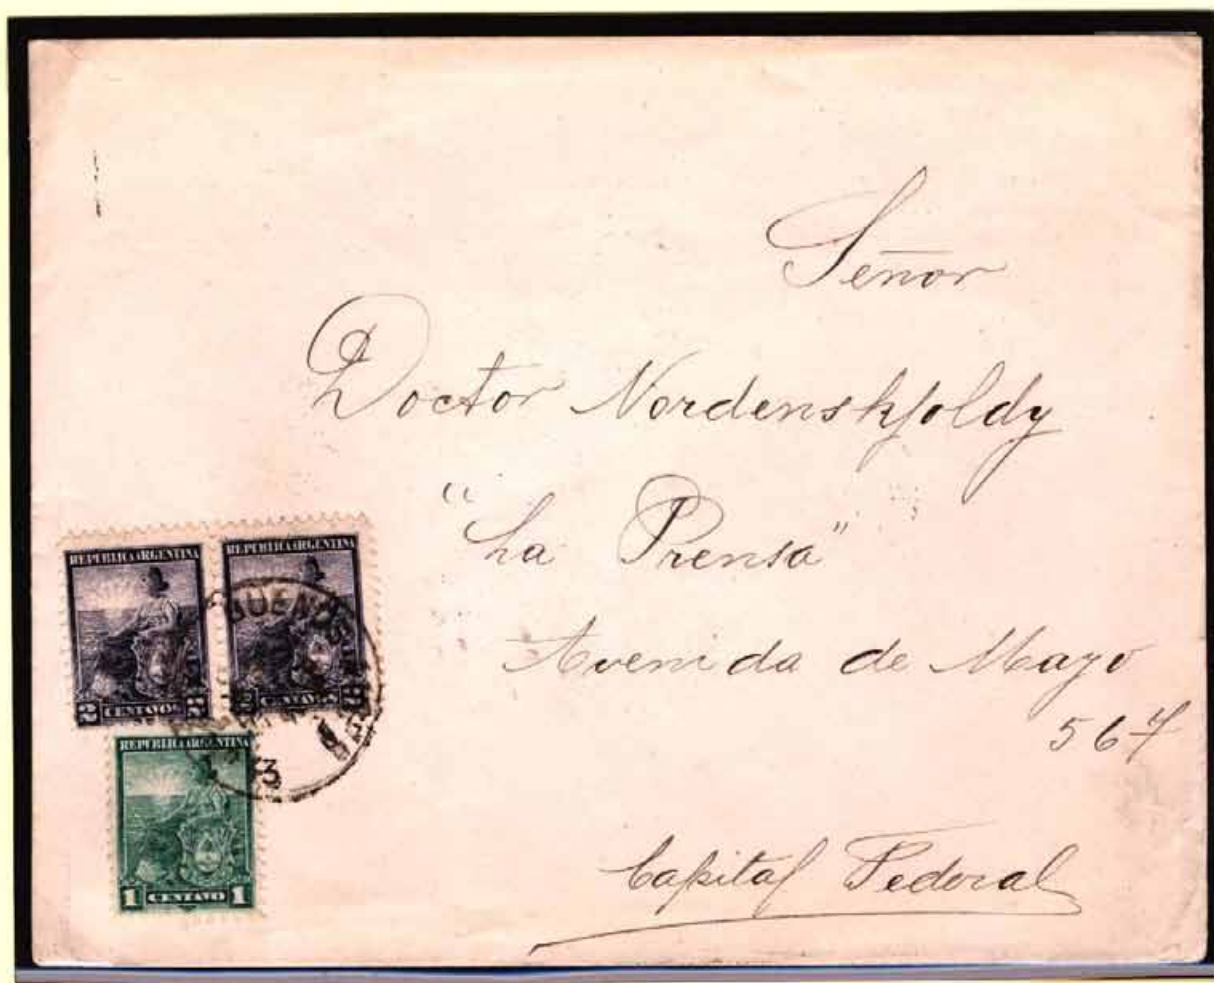 Señor
Doctor Nordenskjoldy
"La Prensa"
Avenida de Mayo
567
Capital Federal
REPUBLICA ARGENTINA
2 CENTAVOS 2
REPUBLICA ARGENTINA
2 CENTAVOS 2
BUENOS
3
REPUBLICA ARGENTINA
1 CENTAVO 1